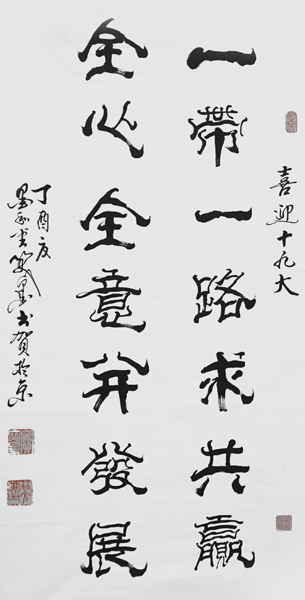 喜迎十九大
一帶一路求共贏
全心全意并發展
丁酉夏
書賀於京